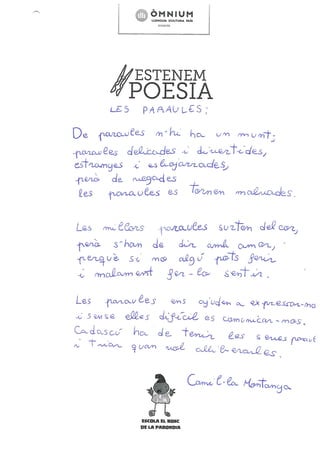 ÒMNIUM
LLENGUA CULTURA PAÍS
ESTENEM
POESIA
LES PARAULES:
De paraules n'hi ha un munt:
paraules delicades i divertides,
estranyes i esbojarrades,
però de vegades
les paraules es tornen malvades.
Les millors paraules surten del cor,
però s'han de dir amb amor,
perquè si no algú pots ferir
i malament fer-lo sentir.
Les paraules ens ajuden a expressar-no
i sense elles difícil es comunicar-nos.
Cadascú ha de tenir les seves paraul
i triar quan vol alliberarles.
Camil·la Montanya
ESCOLA EL ROIC
DE LA PARONDIA